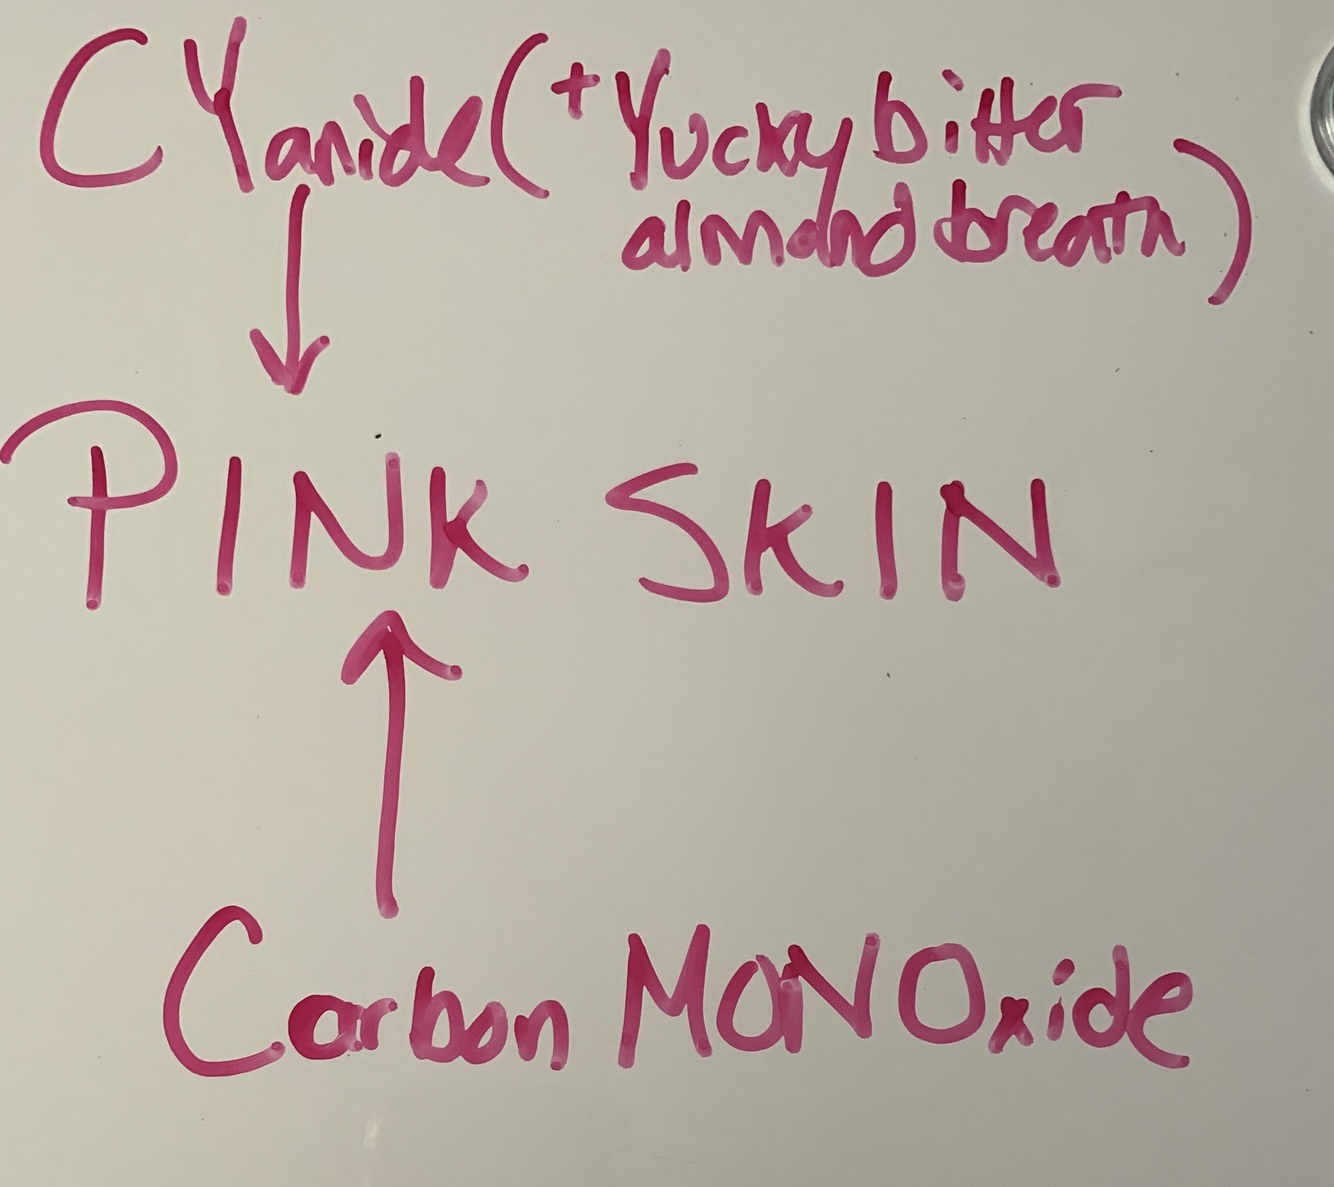 CYanide (+ Yucky bitter
almond breath)
PINK SKIN
Carbon MONOxide